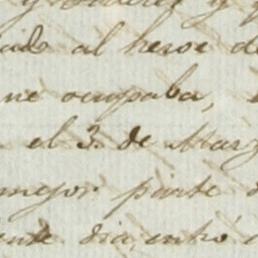 y
al heroe de
ocupaba,
el 3. de Marz
mejor parte d
dia, entró